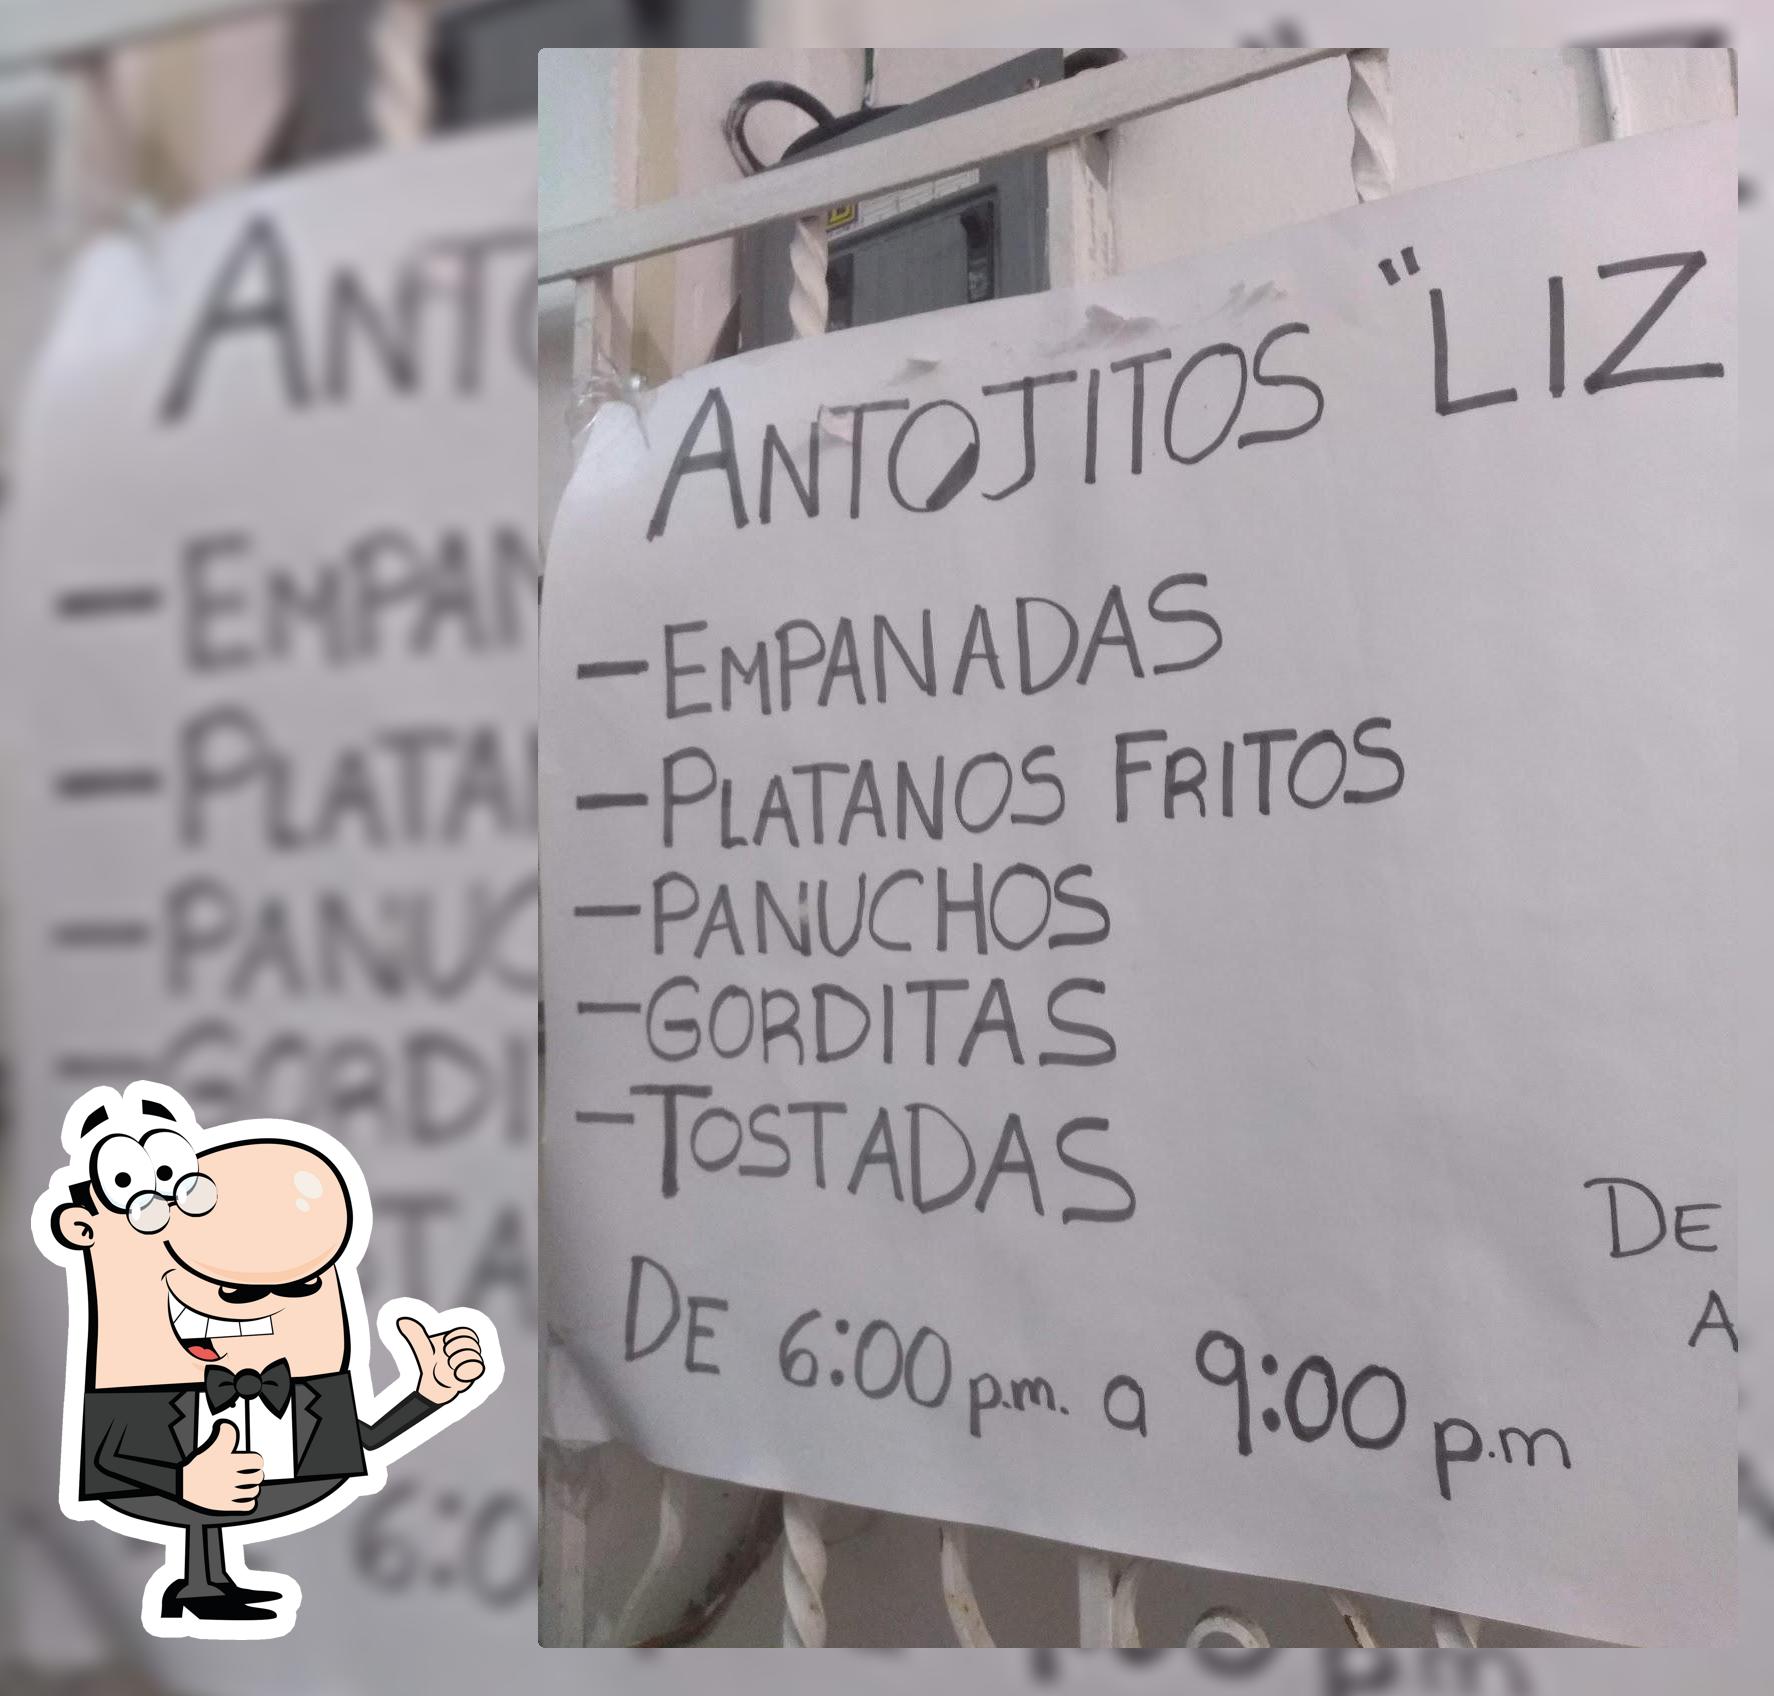 ANTOJITOS "LIZ
- EMPANADAS
- PLATANOS FRITOS
- PANUCHOS
- GORDITAS
- TOSTADAS
DE
A
DE 6:00 p.m. a 9:00 p.m